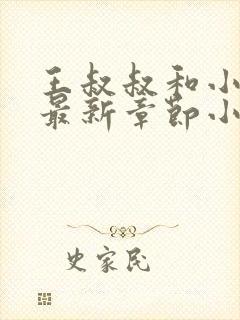 王叔叔和小
最新章节小
史家民